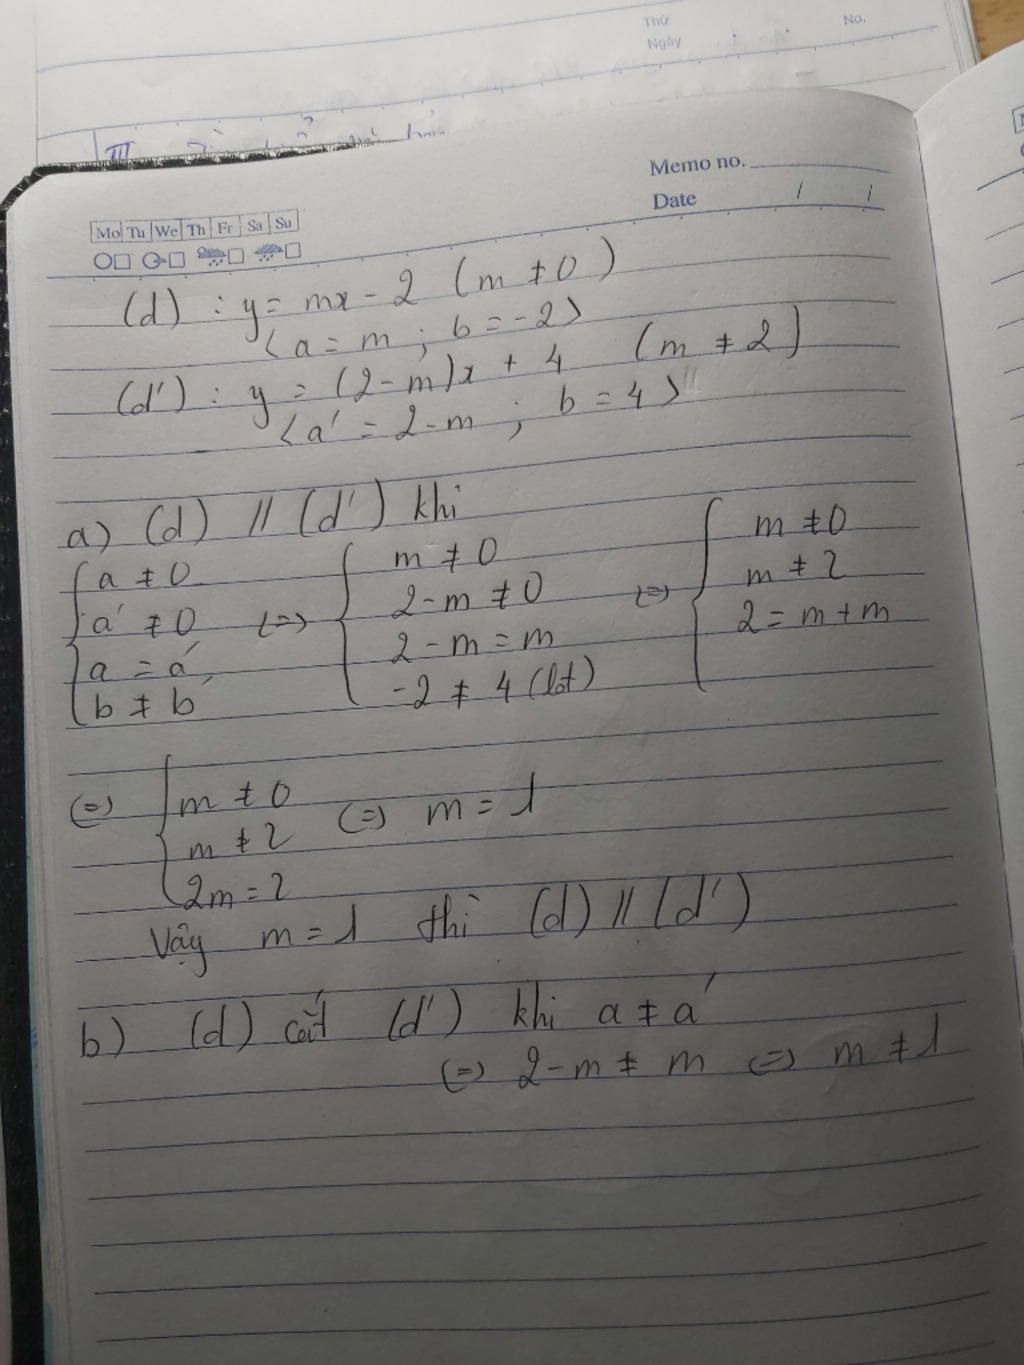 Thứ
No.
Ngày
III
Memo no.
Date / /
Mo Tu We Th Fr Sa Su
(d) : y = mx - 2 (m ≠ 0)
<a = m ; b = -2>
(d') : y = (2-m)x + 4 (m ≠ 2)
<a' = 2-m ; b = 4>
a) (d) // (d') khi
{ a ≠ 0 { m ≠ 0 { m ≠ 0
a' ≠ 0 (=) 2-m ≠ 0 (=) m ≠ 2
a = a' 2-m = m 2 = m+m
b ≠ b' -2 ≠ 4 (lđt)
(=) { m ≠ 0 (=) m = 1
m ≠ 2
2m = 2
Vậy m = 1 thì (d) // (d')
b) (d) cắt (d') khi a ≠ a'
(=) 2-m ≠ m (=) m ≠ 1